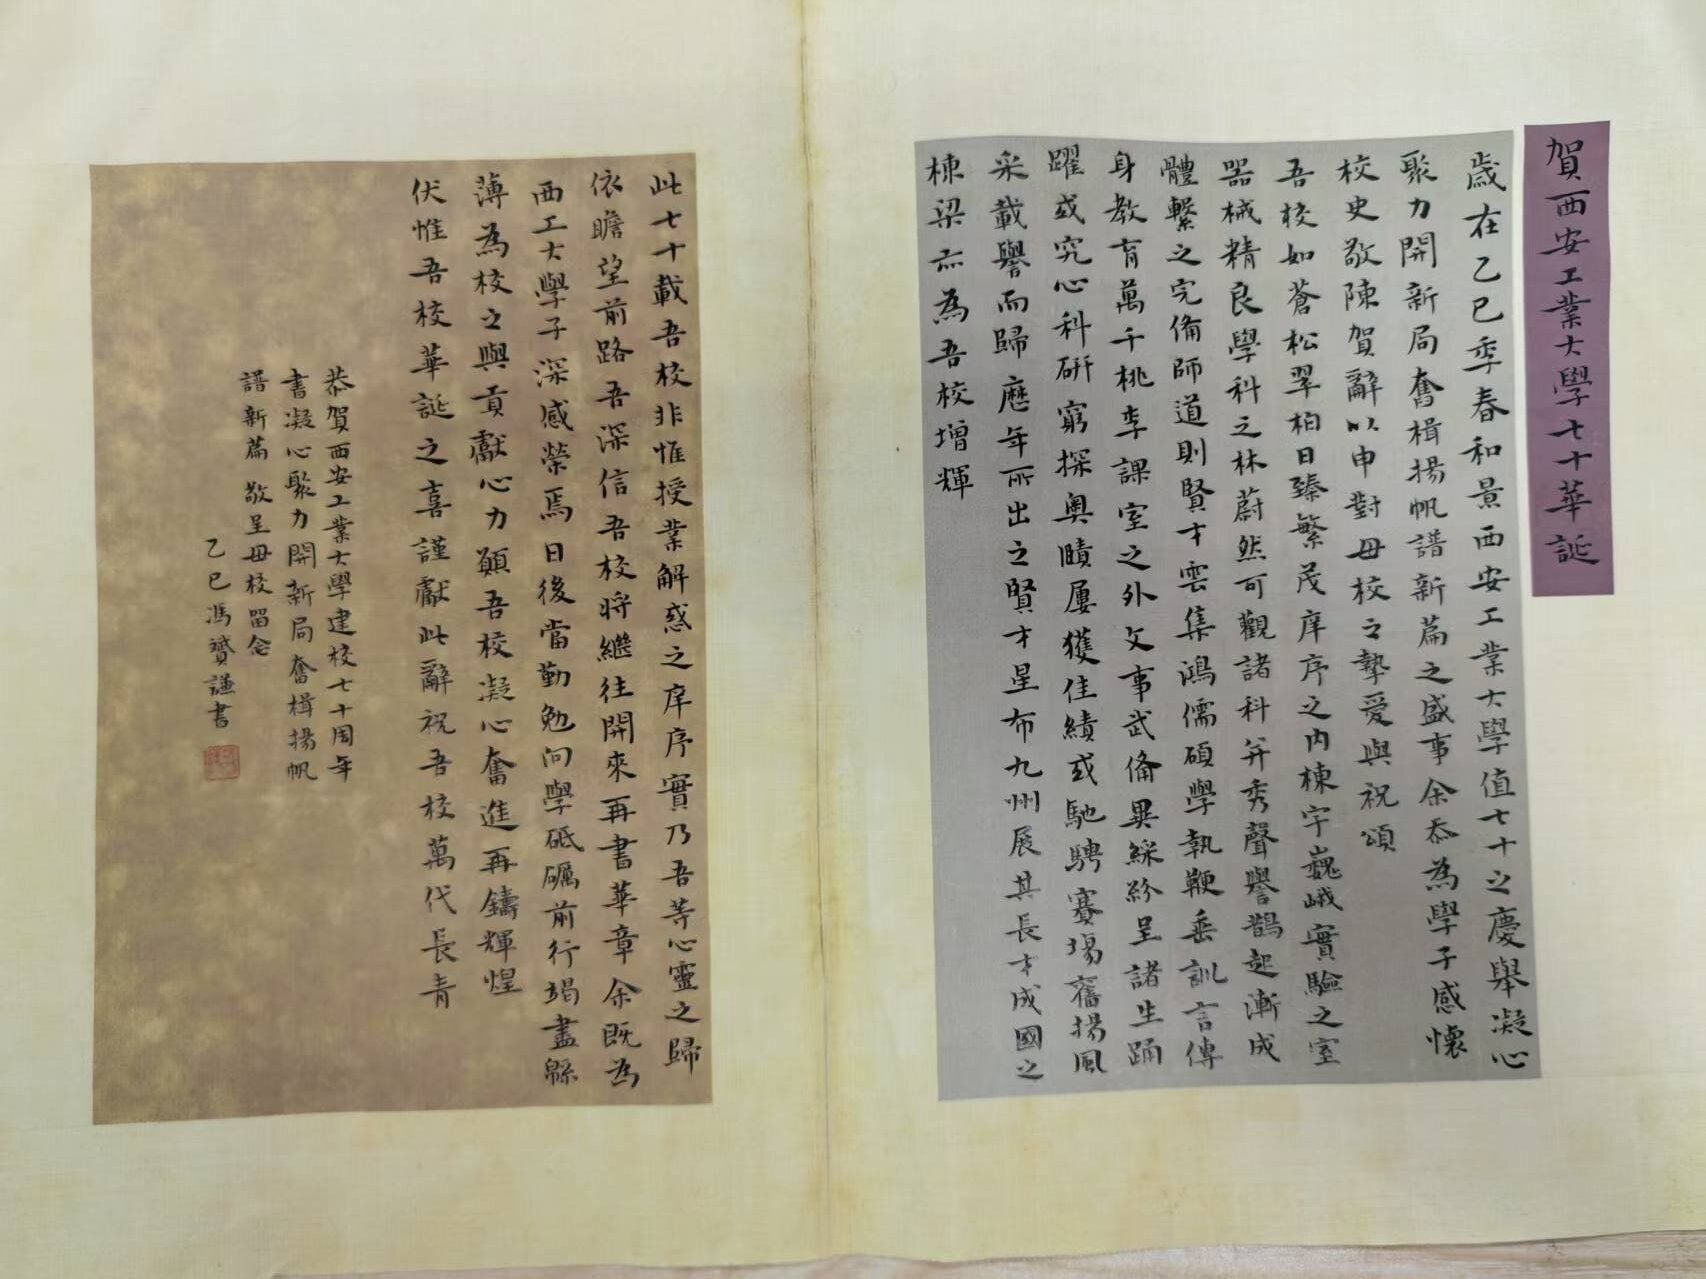 賀西安工業大學七十華誕
歲在乙巳季春和景西安工業大學值七十之慶舉凝心
聚力開新局奮楫揚帆譜新篇之盛事余忝為學子感懷
校史敬陳賀辭以申對母校之摯愛與祝頌
吾校如蒼松翠柏日臻繁茂庠序之内棟宇巍峨實驗之室
器械精良學科之林蔚然可觀諸科并秀聲譽鵲起漸成
體繫之完備師道則賢才雲集鴻儒碩學執鞭垂訓言傳
身教育萬千桃李課室之外文事武備異綵紛呈諸生踊
躍或究心科研窮探奥賾屢獲佳績或馳騁賽場奮揚風
采載譽而歸歷年所出之賢才星布九州展其長才成國之
棟梁亦為吾校增輝
此七十載吾校非惟授業解惑之庠序實乃吾等心靈之歸
依瞻望前路吾深信吾校將繼往開來再書華章余既為
西工大學子深感榮焉日後當勤勉向學砥礪前行竭盡緜
薄為校之興貢獻心力願吾校凝心奮進再鑄輝煌
伏惟吾校華誕之喜謹獻此辭祝吾校萬代長青
恭賀西安工業大學建校七十周年
書凝心聚力開新局奮楫揚帆
譜新篇敬呈母校留念
乙巳馮贇謙書